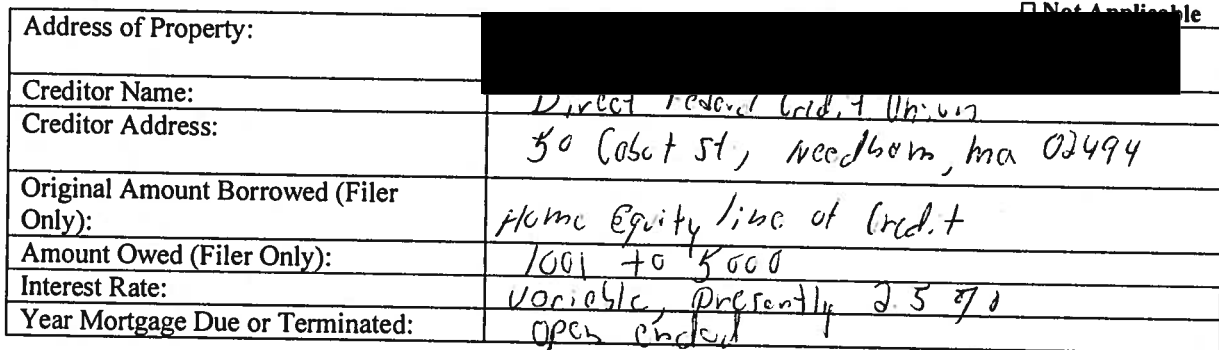 ☐ Not Applicable
Address of Property:
Creditor Name: Direct Federal Credit Union
Creditor Address: 50 Cabot St, Needham, ma 02494
Original Amount Borrowed (Filer
Only): Home Equity line of Credit
Amount Owed (Filer Only): 1001 to 5000
Interest Rate: Variable, presently 2.5 %
Year Mortgage Due or Terminated: open ended